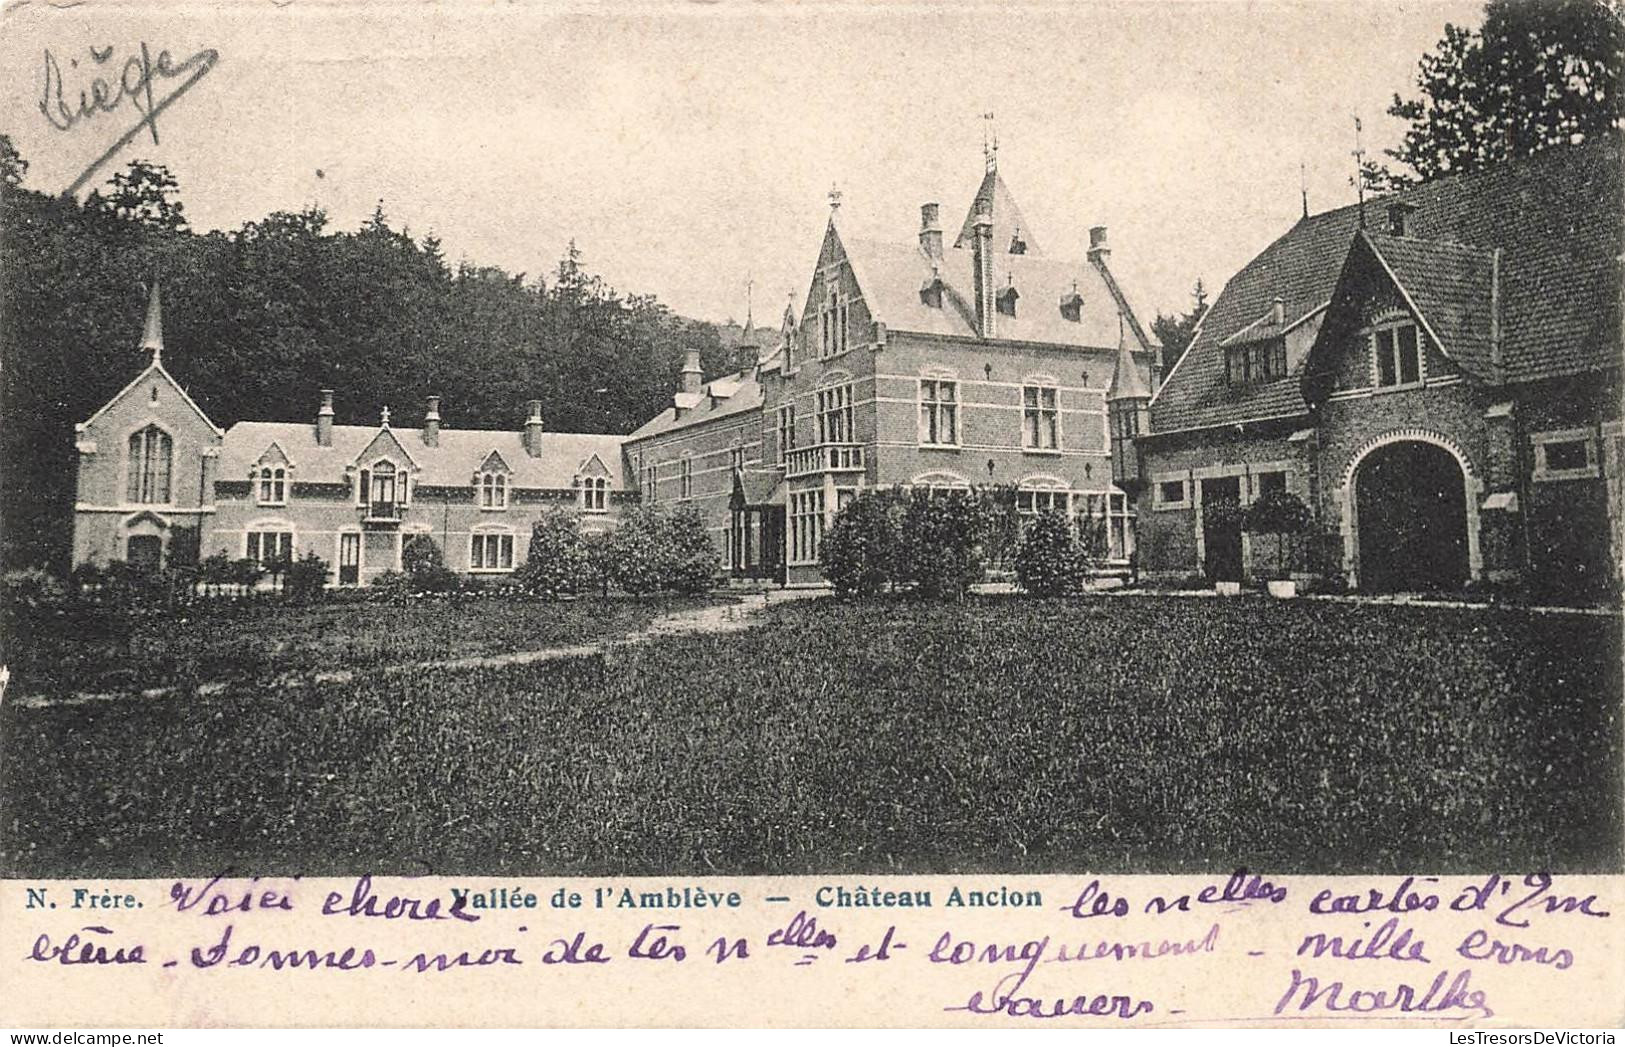 Liège
N. Frère. Voici chère Vallée de l'Amblève — Château Ancion les nelles cartes d'Em
- Donnes-moi de tes nelles et longuement - mille
Marthe
LesTresorsDeVictoria